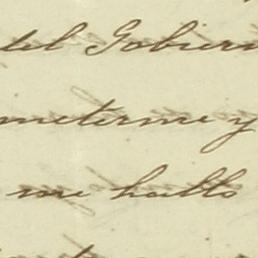 del Gobier
meterme y
me hallo